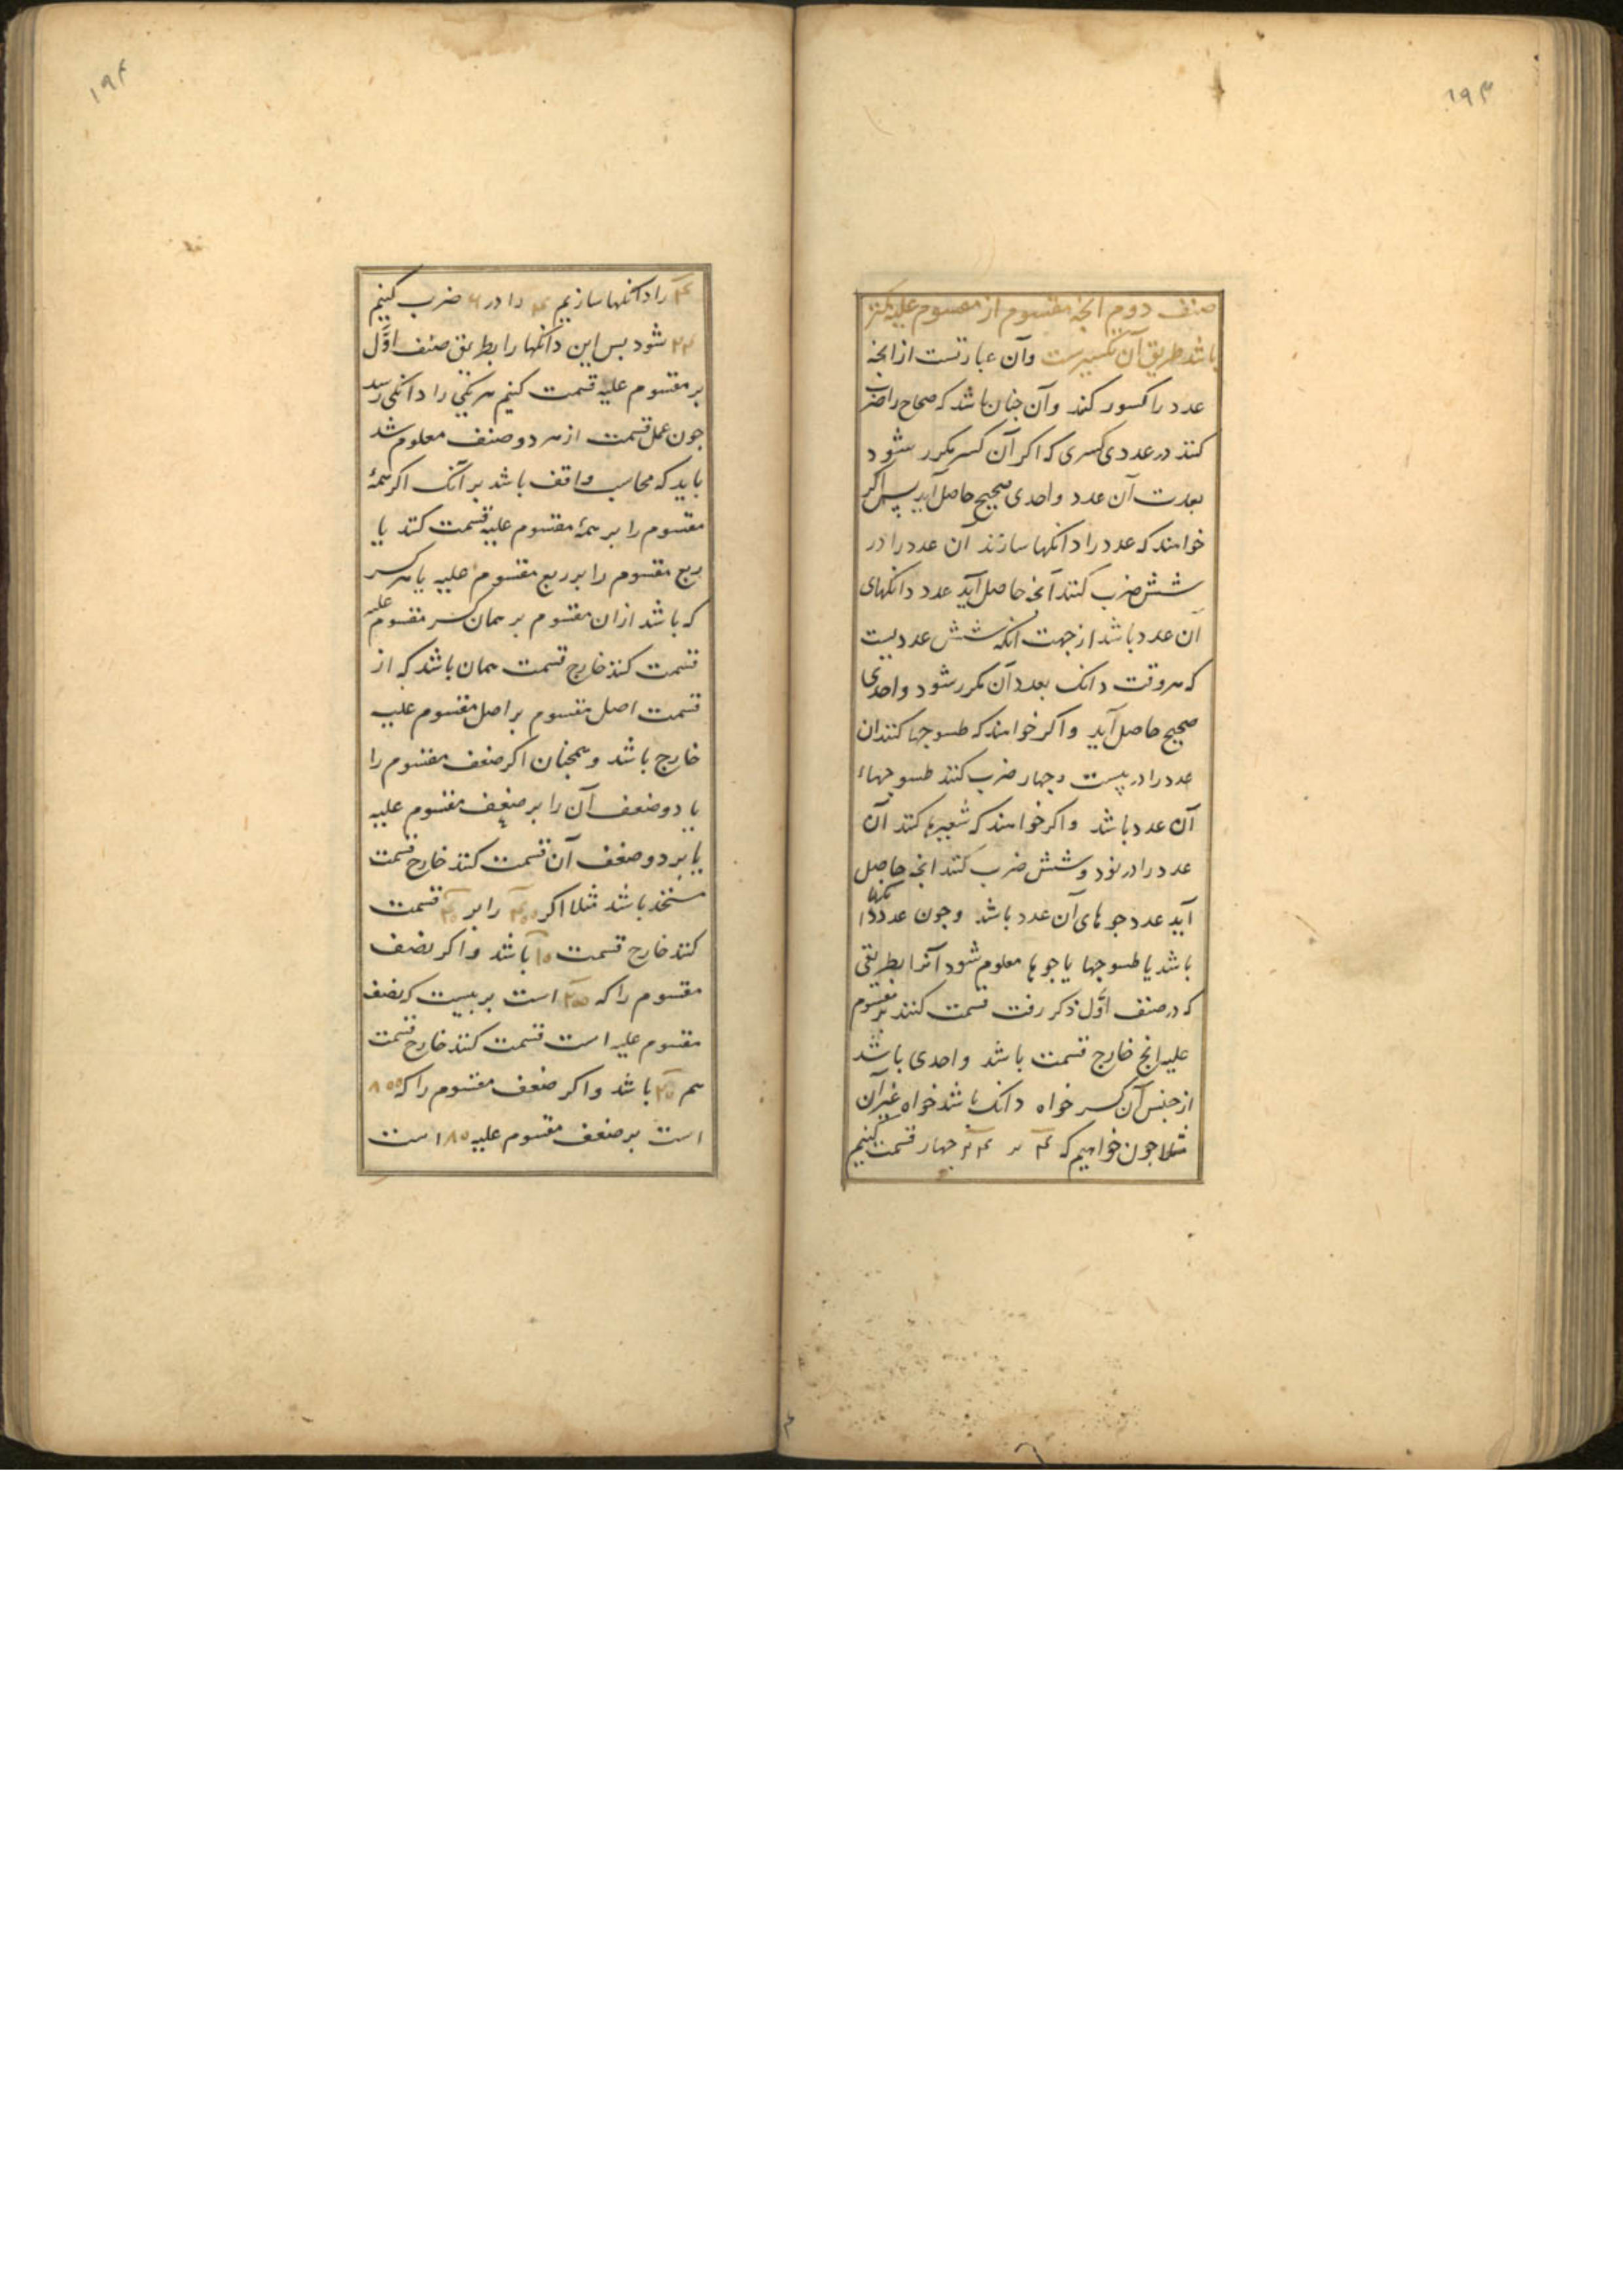 ۱۹۳
صنف دوم انجه مقسوم از مقسوم علیه کمتر
باشد طریق آن تکسیرست وآن عبارتست از انجه
عدد را کسور کند وآن جنان باشد که صحاح را ضرب
کنند در عددی کسری که اکر آن کسر مکرر شود
بعدت آن عدد واحدی صحیح حاصل آید پس اکر
خواهند که عدد را دانکها سازند آن عدد را در
شش ضرب کنند آنجه حاصل آید عدد دانکهای
آن عدد باشد از جهت آنکه شش عددیست
که هر وقت دانک بعدد آن مکرر شود واحدی
صحیح حاصل آید واکر خواهند که طسوجها کنند ان
عدد را در بیست وجهار ضرب کنند طسوجهاء
آن عدد باشد واکر خواهند که شعیرها کنند آن
عدد را در نود وشش ضرب کنند انجه حاصل
آید عدد جوهای آن عدد باشد وجون عدد دانکها
باشد یا طسوجها یا جوها معلوم شود آنرا بطریقی
که در صنف اوّل ذکر رفت قسمت کنند بر مقسوم
علیه انج خارج قسمت باشد واحدی باشد
از جنس آن کسر خواه دانک باشد خواه غیر آن
مثلا جون خواهیم که ۴ بر ۲۴ جهار قسمت کنیم
۱۹۴
۴ را دانکها سازیم ۴ را در ۶ ضرب کنیم
۲۴ شود بس این دانکها را بطریق صنف اوّل
بر مقسوم علیه قسمت کنیم هر یکی را دانکی رسد
جون عمل قسمت از هر دو صنف معلوم شد
باید که محاسب واقف باشد بر آنک اکر همهٔ
مقسوم را بر همهٔ مقسوم علیه قسمت کنند یا
ربع مقسوم را بر ربع مقسوم علیه یا هر کسر
که باشد ازان مقسوم بر همان کسر مقسوم علیه
قسمت کنند خارج قسمت همان باشد که از
قسمت اصل مقسوم بر اصل مقسوم علیه
خارج باشد وهمجنان اکر ضعف مقسوم را
یا دو ضعف آن را بر ضعف مقسوم علیه
یا بر دو ضعف آن قسمت کنند خارج قسمت
متحد باشد مثلا اکر ۴۰۰ را بر ۴۰ قسمت
کنند خارج قسمت ۱۰ باشد واکر نصف
مقسوم را که ۲۰۰ است بر بیست که نصف
مقسوم علیه است قسمت کنند خارج قسمت
هم باشد واکر ضعف مقسوم را که ۸۰۰
است بر ضعف مقسوم علیه ۸۰ است